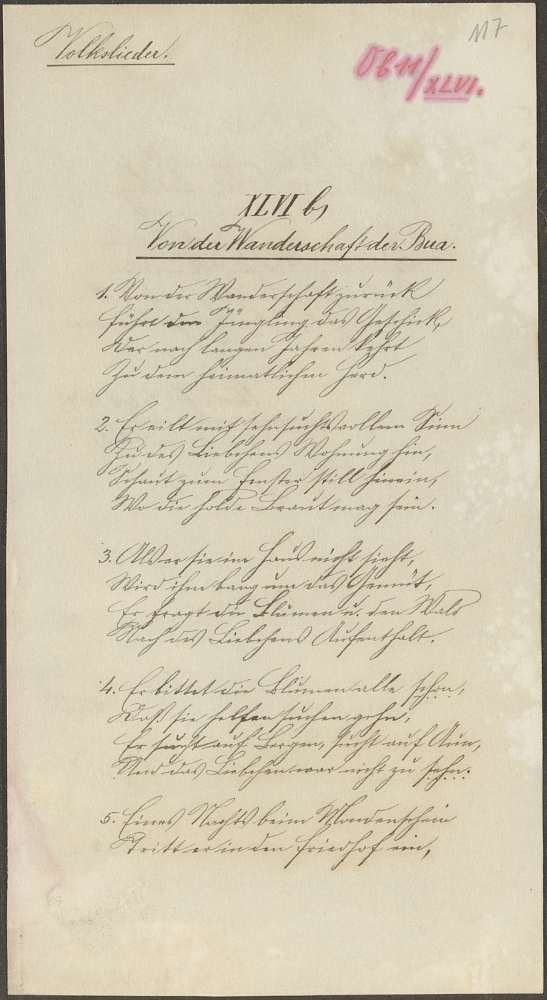 Volkslieder!
117
Ob 11/XLVI.
XLVI b,
Von der Wanderschaft der Bua.
1. Von der Wanderschaft zurück
führt den Jüngling das Geschick,
Der nach langen Jahren kehrt
Zu dem heimatlichen Herd.
2. Er eilt mit sehnsuchtsvollem Sinn
Zu des Liebchens Wohnung hin,
Schaut zum Fenster still hinein,
Wo die holde Braut mag sein.
3. Als er sie im Haus nicht sieht,
Wird ihm bang um das Gemüt,
Er fragt die Blumen u. den Wald
Nach des Liebchens Aufenthalt.
4. Er bittet die Blumen alle schon,
Daß sie helfen suchen gehn,
Er sucht auf Bergen, sucht auf Aun,
Und das Liebchen war nicht zu sehn.
5. Eines Nachts beim Mondenschein
Tritt er in den Friedhof ein,